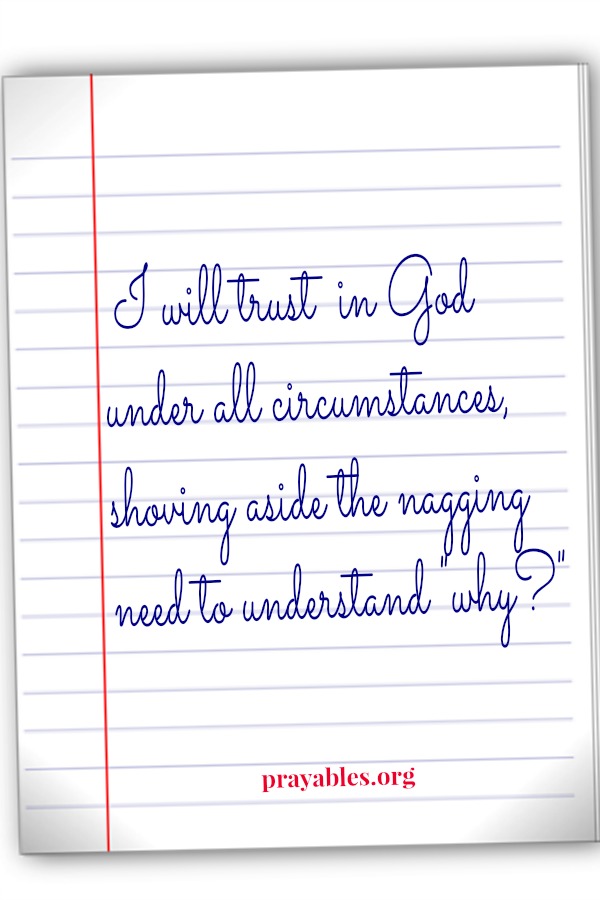 I will trust in God
under all circumstances,
shoving aside the nagging
need to understand "why?"
prayables.org